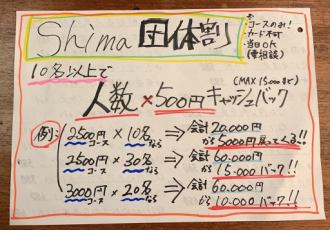 Shima 団体割
コースのみ!
カード不可
当日OK
(要相談)
10名以上で
(MAX 15000まで)
人数×500円キャッシュバック
例:
2500円コース × 10名なら ⇒ 会計 20.000円
から 5000円 戻ってくる!!
2500円コース × 30名なら ⇒ 会計 60.000円
から 15.000 バック!!
3000円コース × 20名なら ⇒ 会計 60.000円
から 10.000 バック!!